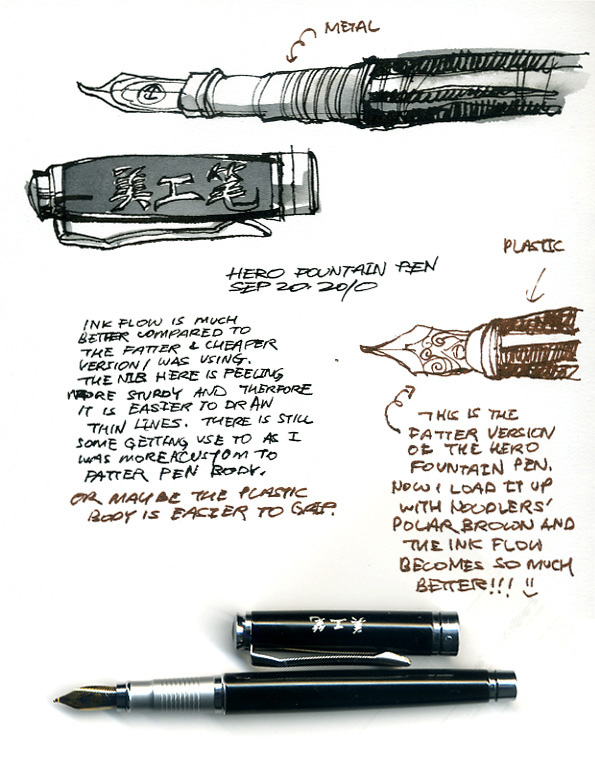 METAL
美工笔
HERO FOUNTAIN PEN
SEP 20. 2010
PLASTIC
INK FLOW IS MUCH
BETTER COMPARED TO
THE FATTER & CHEAPER
VERSION I WAS USING.
THE NIB HERE IS FEELING
MORE STURDY AND THERFORE
IT IS EASIER TO DRAW
THIN LINES. THERE IS STILL
SOME GETTING USE TO AS I
WAS MORE ACUSTOM TO
FATTER PEN BODY.
OR MAYBE THE PLASTIC
BODY IS EASIER TO GRIP.
THIS IS THE
FATTER VERSION
OF THE HERO
FOUNTAIN PEN.
NOW I LOAD IT UP
WITH NOODLERS'
POLAR BROWN AND
THE INK FLOW
BECOMES SO MUCH
BETTER!!!
美工笔